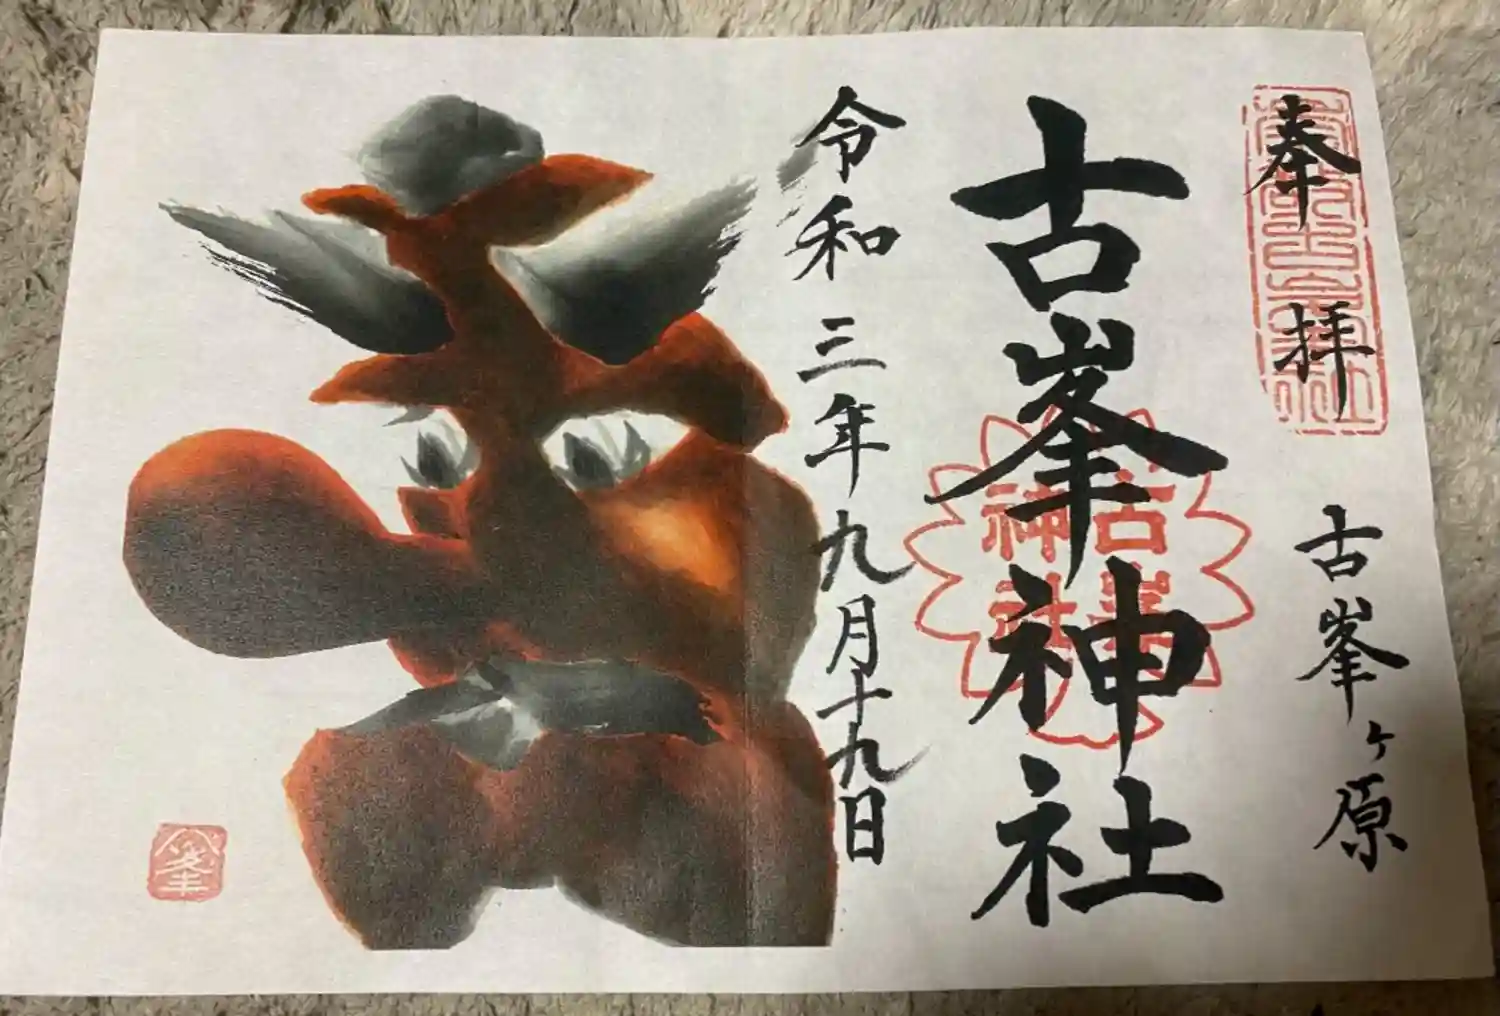 奉拝
古峯ヶ原
古峯神社
古峯神社
令和三年九月十九日
峯